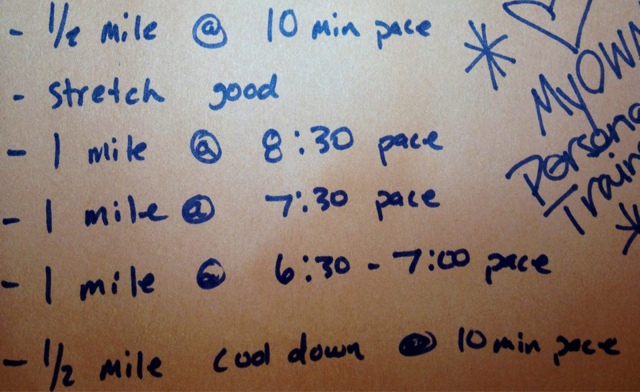 - 1/2 mile @ 10 min pace
- stretch good
- 1 mile @ 8:30 pace
- 1 mile @ 7:30 pace
- 1 mile @ 6:30 - 7:00 pace
- 1/2 mile cool down @ 10 min pace
* ♡
My OWN
Persona
Train
*